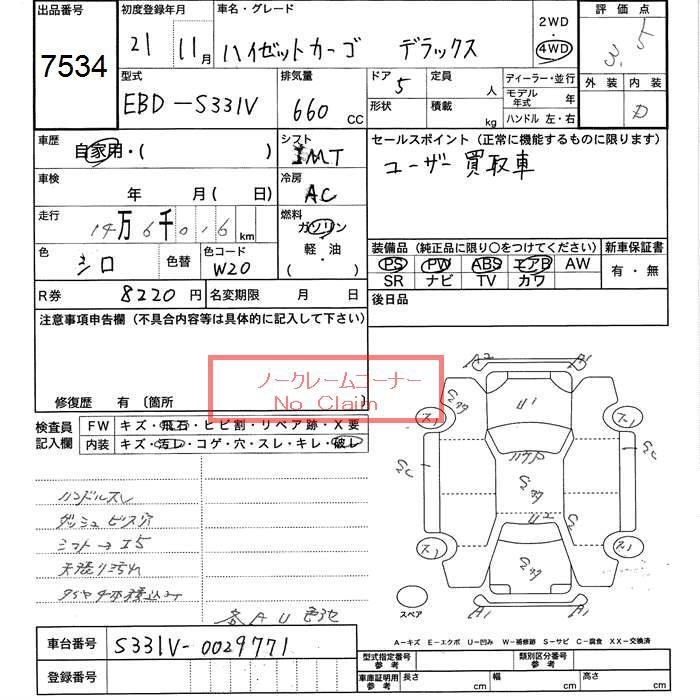 出品番号 初度登録年月 車名・グレード 2WD 4WD 評価点
7534 21 11月 ハイゼットカーゴ デラックス 3.5
型式 排気量 ドア 定員 ディーラー・並行 外装 内装
EBD-S331V 660 CC 5 人 モデル年式 年 D
形状 積載 kg ハンドル 左・右
車歴 自家用・( ) シフト IMT セールスポイント (正常に機能するものに限ります)
車検 年 月( 日) 冷房 AC ユーザー買取車
走行 14万6千016km 燃料 ガソリン 軽・油 ( )
色 シロ 色替 色コード W20
装備品 (純正品に限り○をつけてください) 新車保証書
PS PW ABS エアB AW 有・無
SR ナビ TV カワ
R券 8220円 名変期限 月 日 後日品
注意事項申告欄 (不具合内容等は具体的に記入して下さい)
ノークレームコーナー
No Claim
修復歴 有 (箇所 )
検査員記入欄 FW キズ・飛石・ヒビ割・リペア跡・X要
内装 キズ・汚レ・コゲ・穴・スレ・キレ・破レ
ハンドルスレ
ダッシュビス穴
シフト→I5
天張り汚れ
各AU
A2 A1
U1
U2
A1 A1
スペア
A-キズ E-エクボ U-凹み W-補修跡 S-サビ C-腐食 XX-交換済
車台番号 S331V-0029771
登録番号
型式指定番号 参考 類別区分番号 参考
車庫証明用 参考 長さ cm 幅 cm 高さ cm